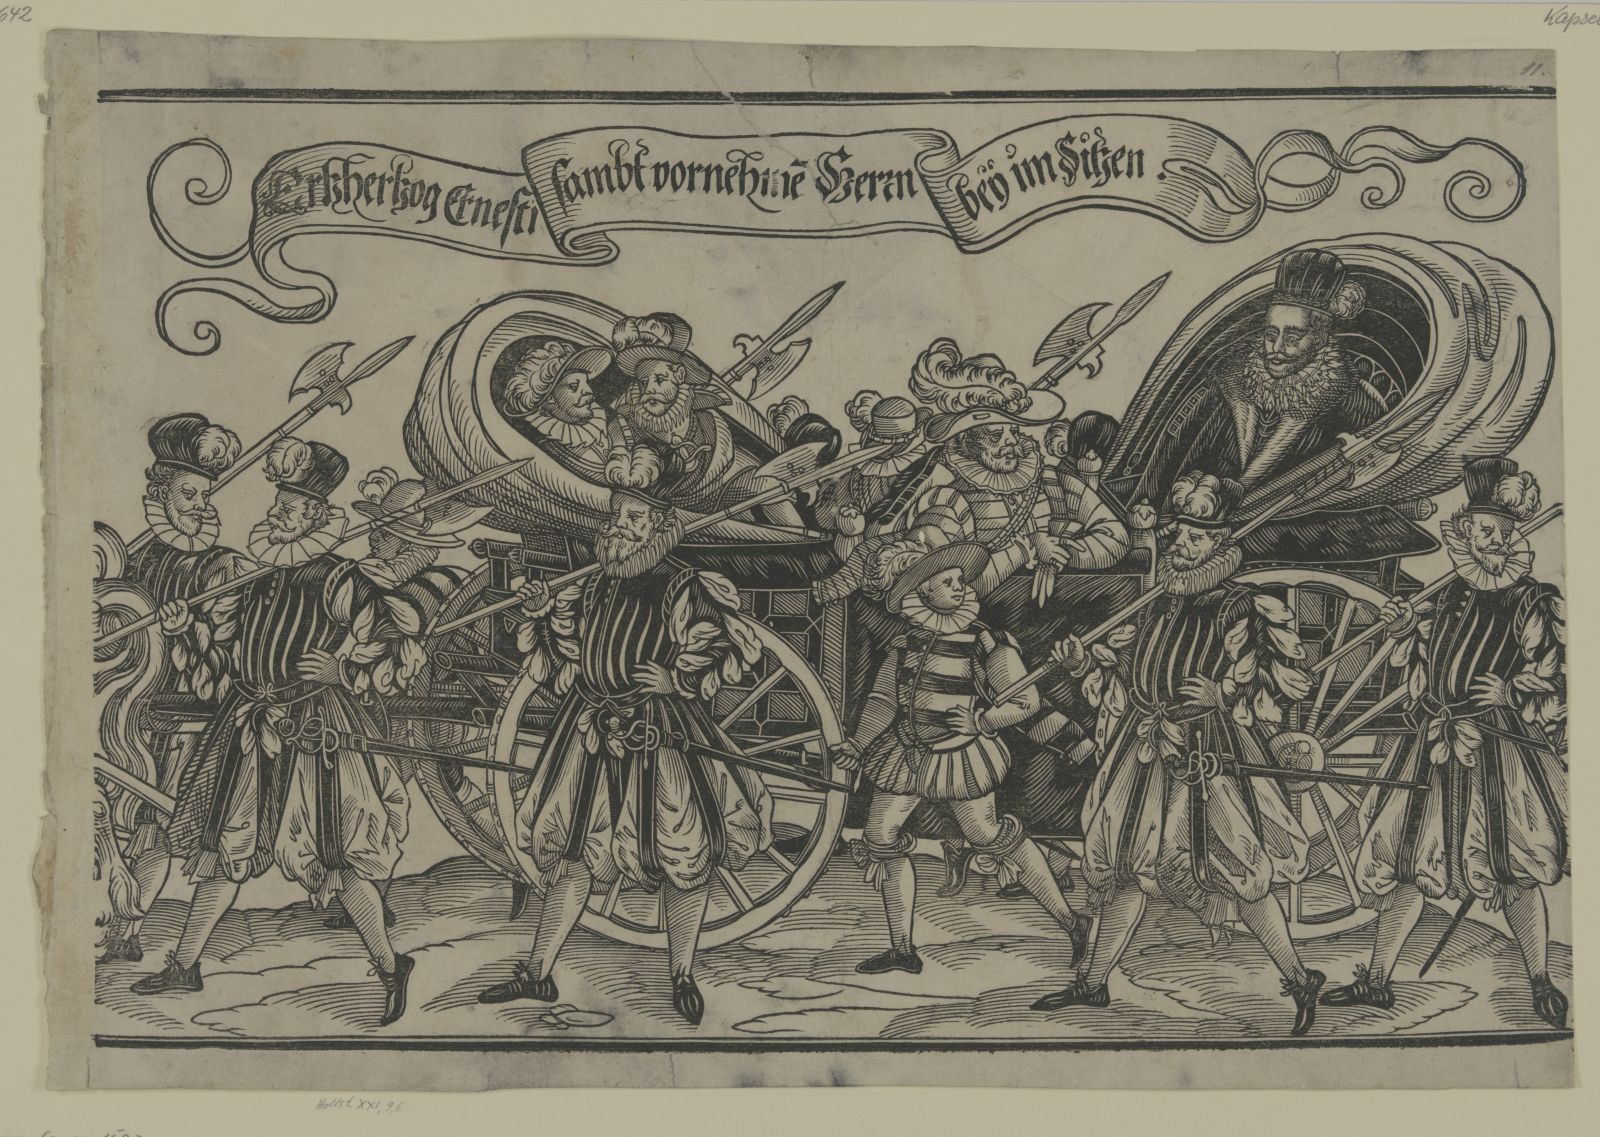 642
Kapsel
11.
Ertzhertzog Ernesti sambt vornehmē Herrn bey im Sitzen.
Hollst. XXI, 9,6